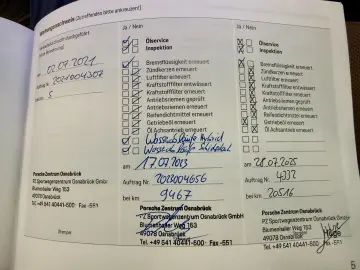 Wartungsnachweis (Zutreffendes bitte ankreuzen)
Ja / Nein
Ölservice
Inspektion
Bremsflüssigkeit erneuert
Zündkerzen erneuert
Luftfilter erneuert
Kraftstofffilter entwässert
Kraftstofffilter erneuert
Antriebsriemen geprüft
Antriebsriemen erneuert
Reifendichtmittel erneuert
Getriebeöl erneuert
Öl Achsantrieb erneuert
am 02.07.2021
Auftrag Nr.
bei km 5
Porsche Zentrum Osnabrück
PZ Sportwagenzentrum Osnabrück GmbH
Blumenhaller Weg 163
49078 Osnabrück
Tel. +49 541 40441-600 · Fax -551
Stempel
am 17.07.2023
Auftrag Nr. 2023004656
bei km 9467
Porsche Zentrum Osnabrück
PZ Sportwagenzentrum Osnabrück GmbH
Blumenhaller Weg 163
49078 Osnabrück
Tel. +49 541 40441-600 · Fax -551
Ja / Nein
Ölservice
Inspektion
Bremsflüssigkeit erneuert
Zündkerzen erneuert
Luftfilter erneuert
Kraftstofffilter entwässert
Kraftstofffilter erneuert
Antriebsriemen geprüft
Antriebsriemen erneuert
Reifendichtmittel erneuert
Getriebeöl erneuert
Öl Achsantrieb erneuert
am 28.07.2025
Auftrag Nr. 4332
bei km 20516
Porsche Zentrum Osnabrück
PZ Sportwagenzentrum Osnabrück GmbH
Blumenhaller Weg 163
49078 Osnabrück
Tel. +49 541 40441-600 · Fax -551
5